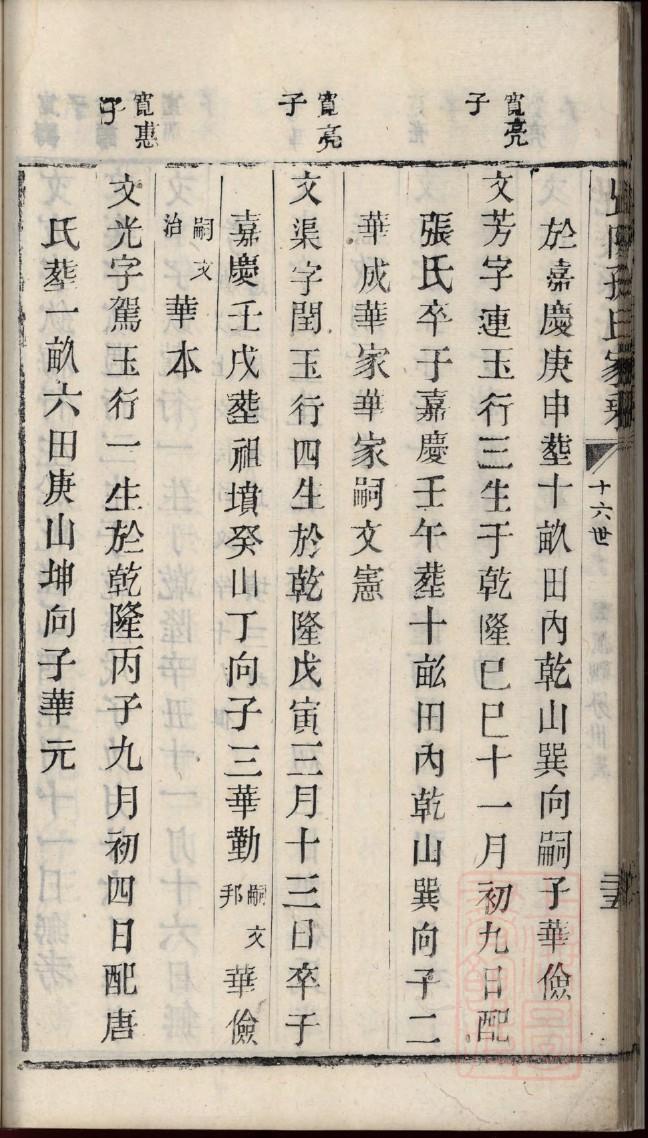 山陰孫氏家乘
十六世
於嘉慶庚申塟十畝田內乾山巽向嗣子華儉
寬亮子
文芳字連玉行三生于乾隆己巳十一月初九日配
張氏卒于嘉慶壬午塟十畝田內乾山巽向子二
華成華家華家嗣文憲
寬亮子
文渠字閏玉行四生於乾隆戊寅三月十三日卒于
嘉慶壬戌塟祖墳癸山丁向子三華勤嗣文邦華儉
嗣文治華本
寬惠子
文光字駕玉行一生於乾隆丙子九月初四日配唐
氏塟一畝六田庚山坤向子華元